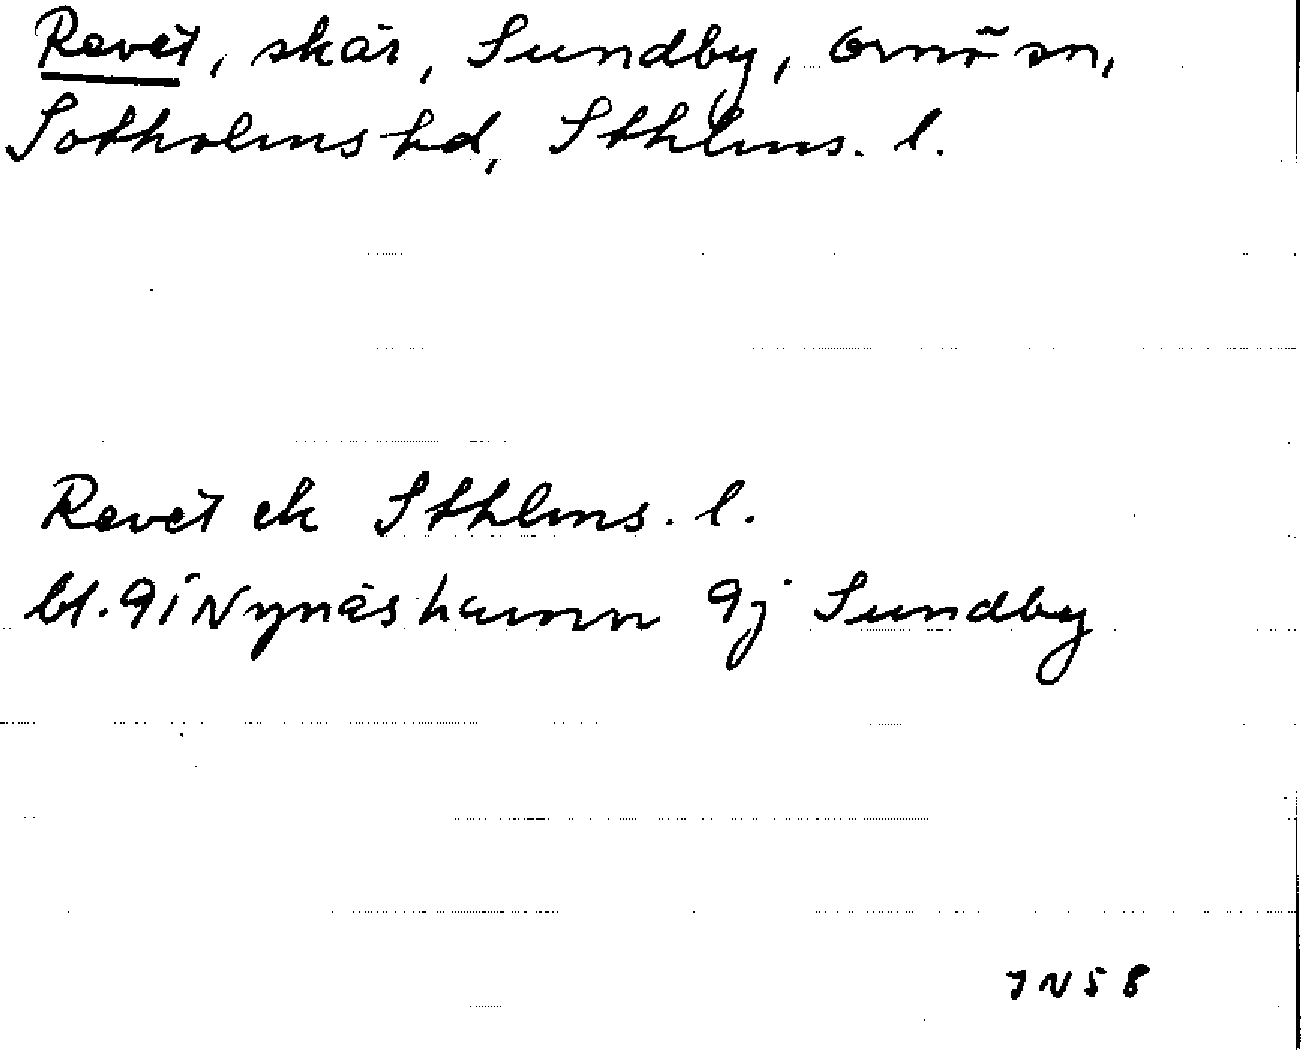 Revet, skär, Sundby, Ornö sn,
Sotholms hd, Sthlms. l.
Revet ek Sthlms. l.
bl. 9i Nynäshamn 9j Sundby
JN58